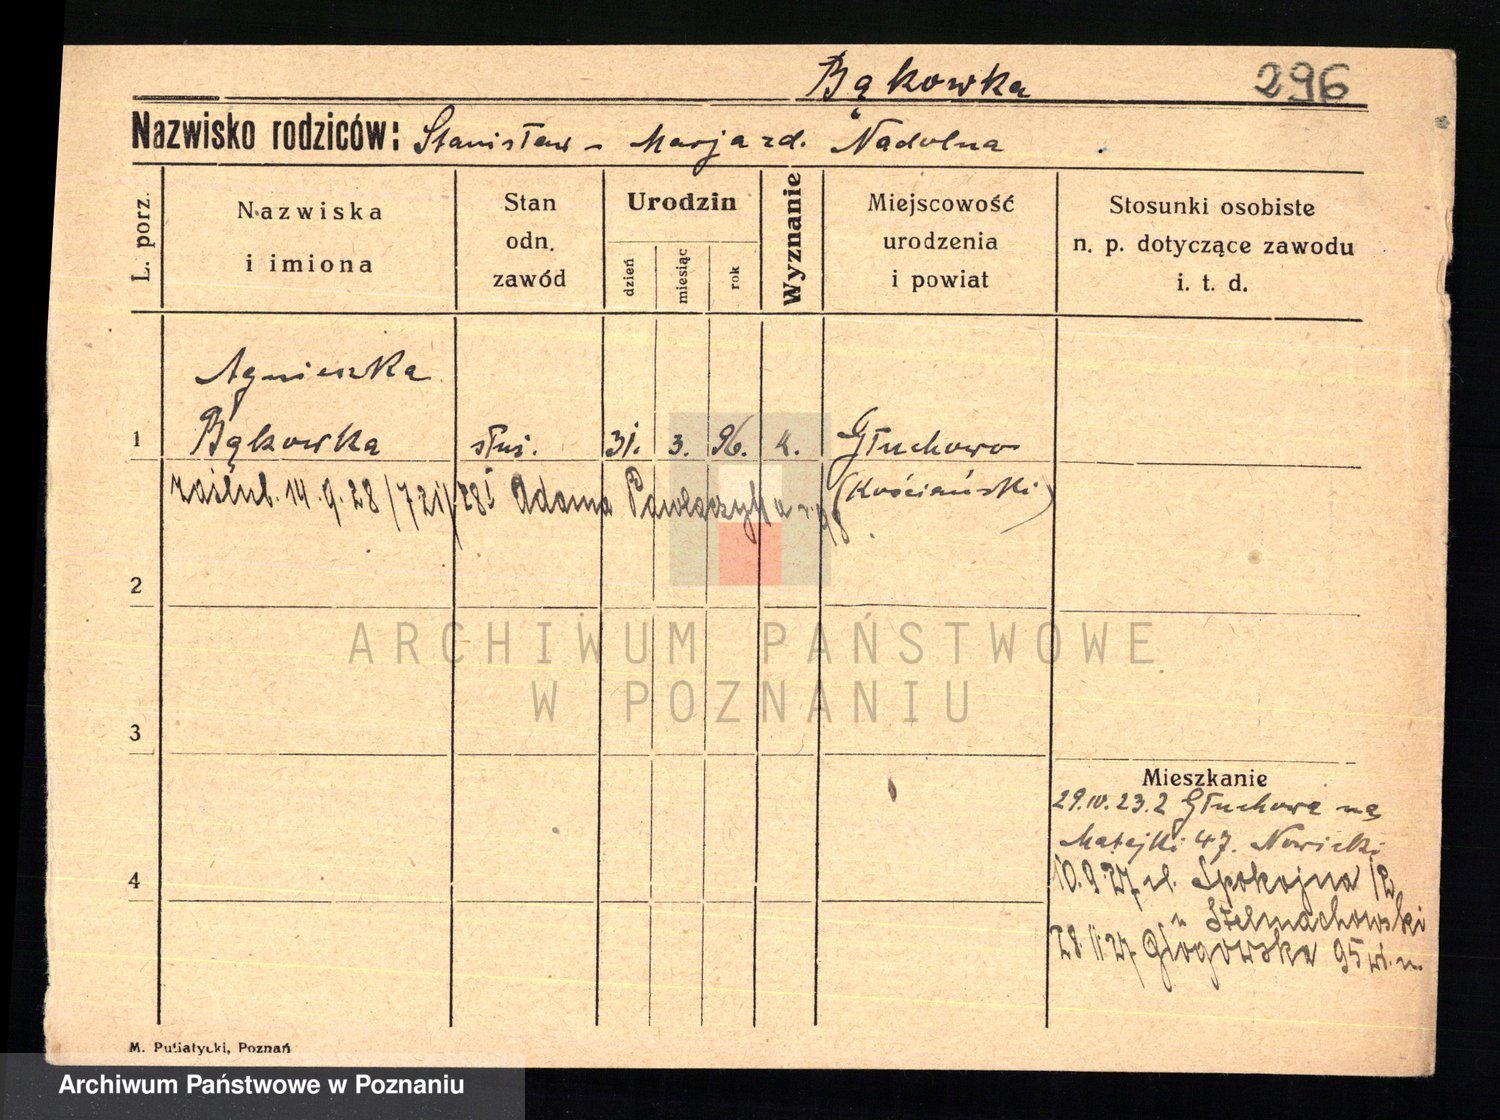 Bąkowka
296
Nazwisko rodziców: Stanisław - Marja zd. Nadolna
L. porz.
Nazwiska i imiona
Stan odn. zawód
Urodzin
dzień
miesiąc
rok
Wyznanie
Miejscowość urodzenia i powiat
Stosunki osobiste n. p. dotyczące zawodu i. t. d.
Agnieszka
1 Bąkowka służ. 31. 3. 96. k. Głuchowo
(Kościański)
zaślub. 14.9.28 /721/28 Adama Pawlaczyka
2
ARCHIWUM PAŃSTWOWE
W POZNANIU
3
Mieszkanie
29.IV.23. z Głuchowa na
Matejki 47. Nowicki
4
10.9.27 ul. Spokojna
u Stelmachowski
28.11.27 Głogowska 95
M. Putiatycki, Poznań
Archiwum Państwowe w Poznaniu